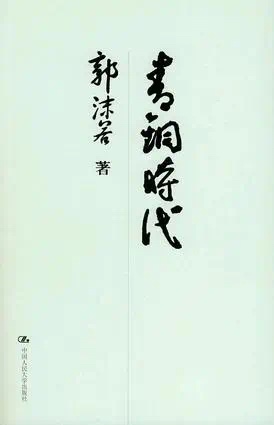 青銅時代
郭沫若 著
中国人民大学出版社